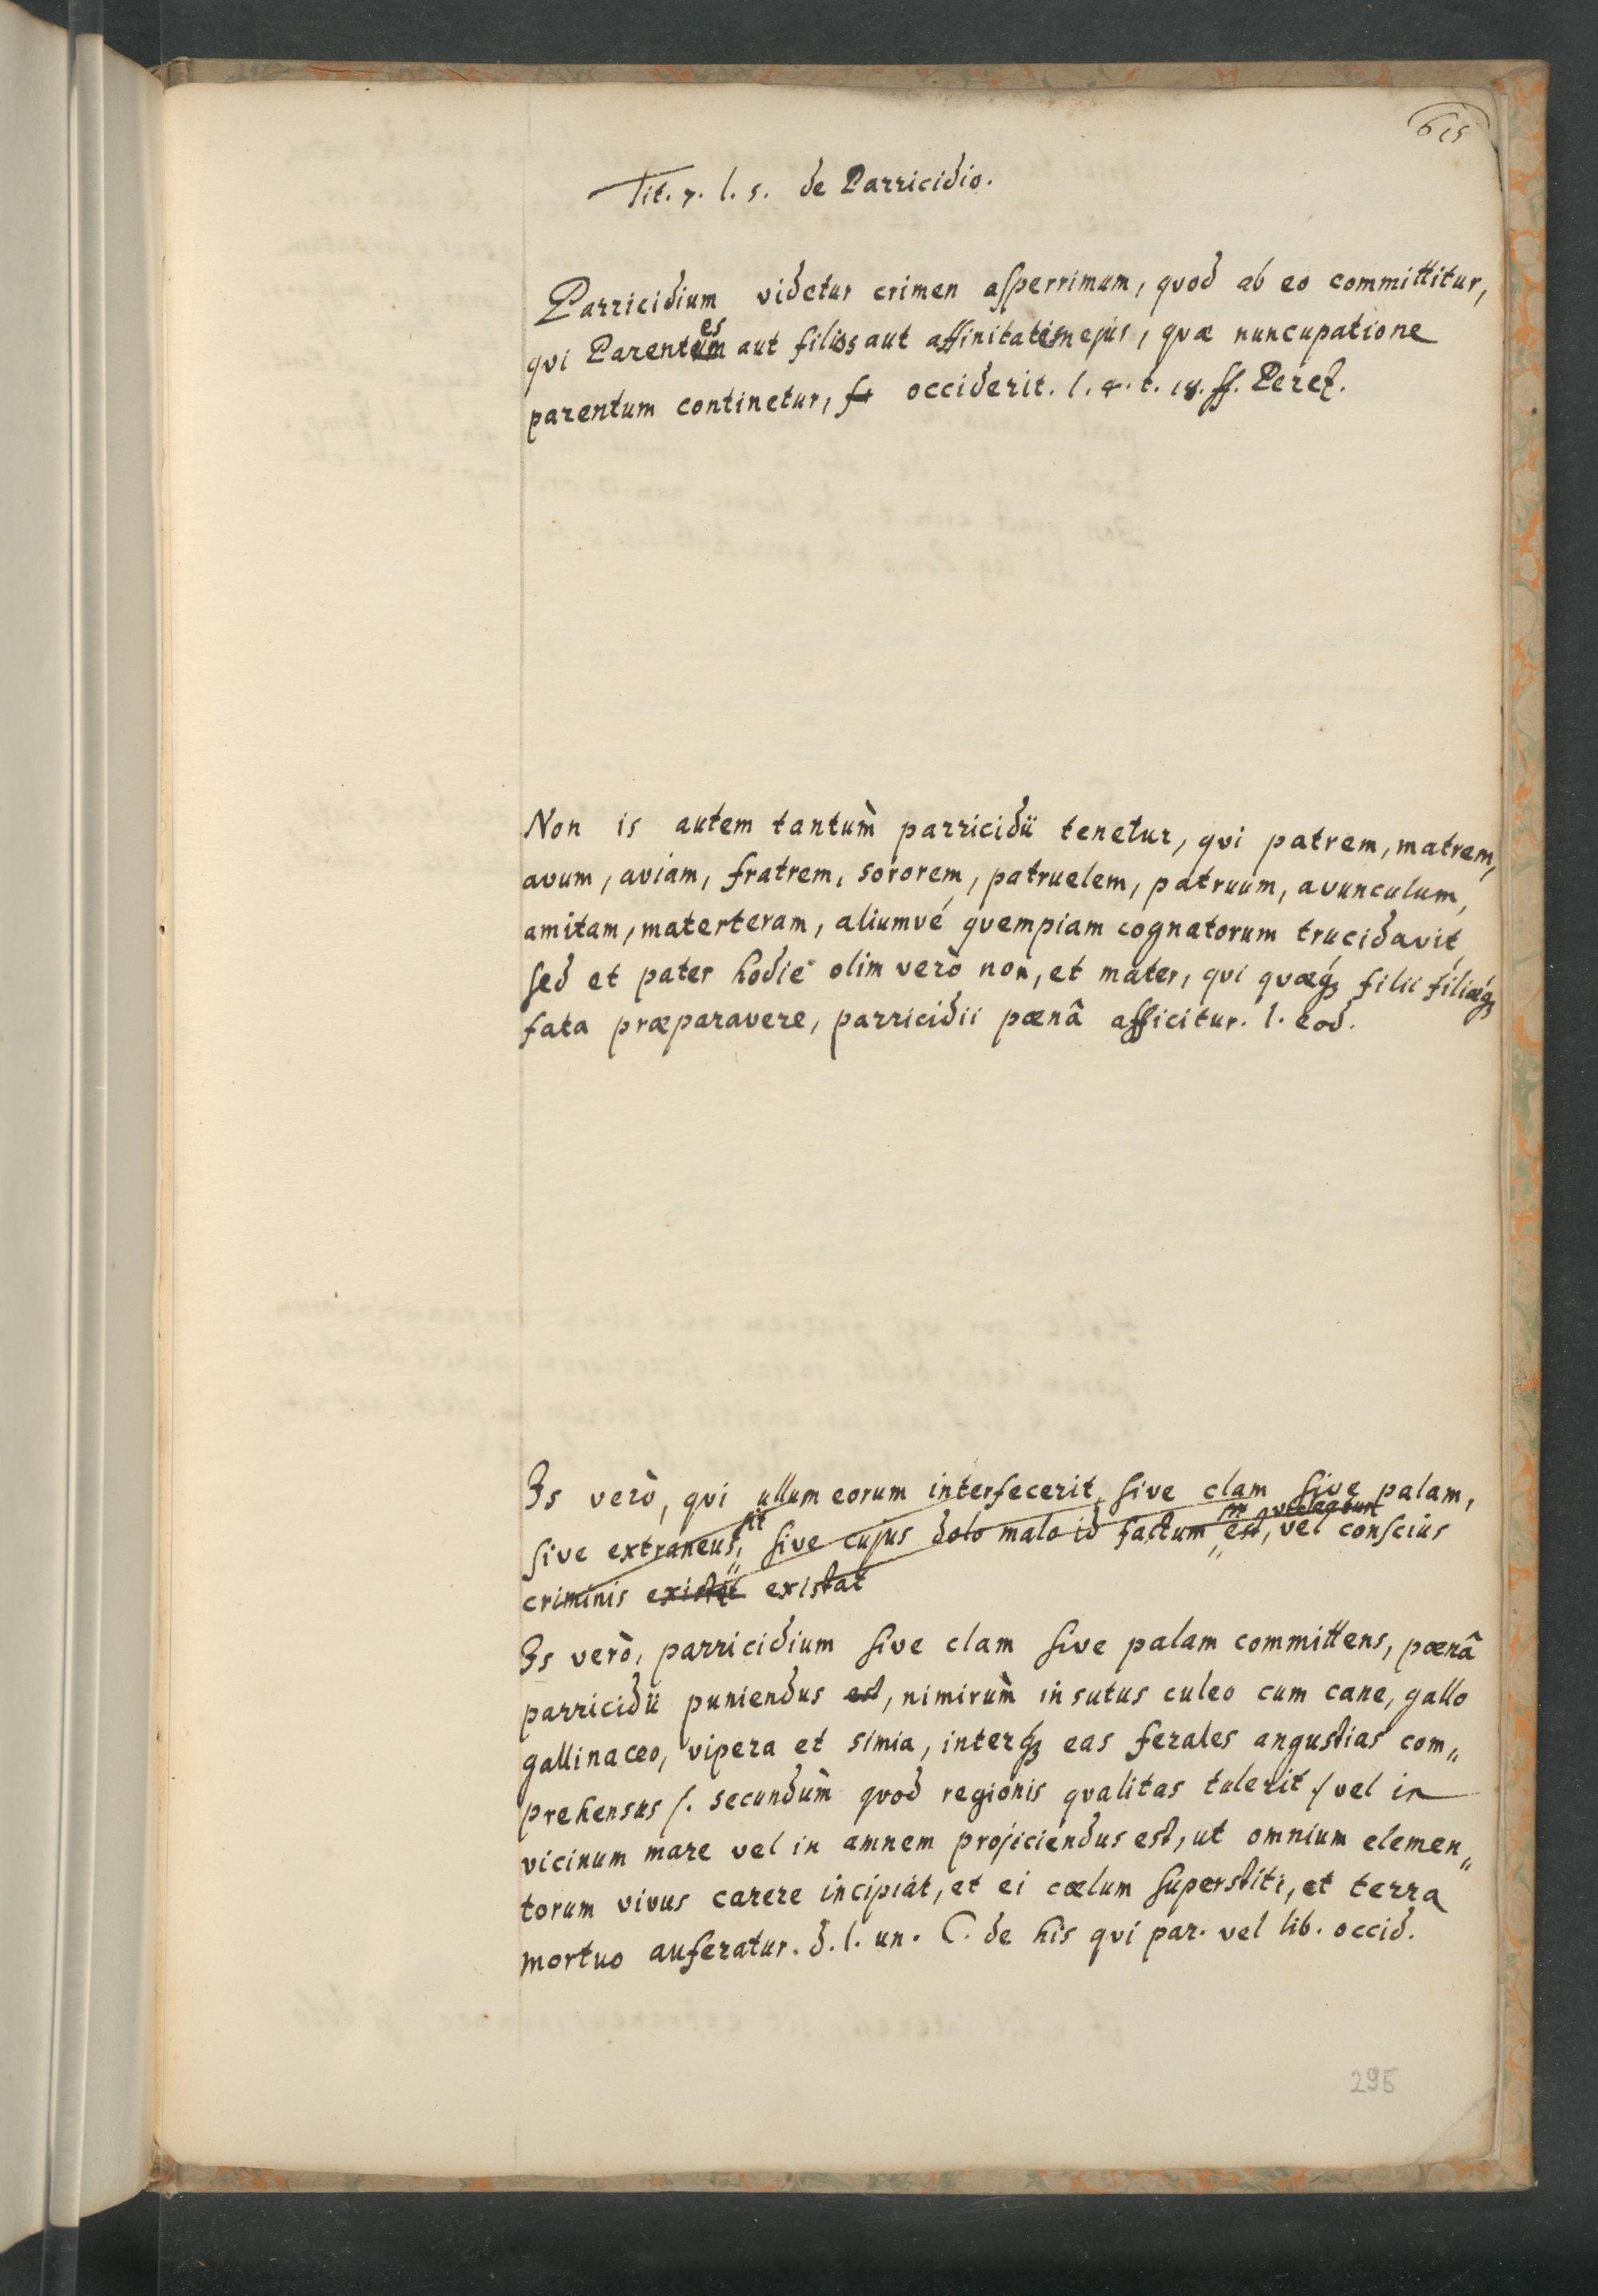 615
Tit. 7. l. 5. de Parricidio.
Parricidium videtur crimen aſperrimum, quod ab eo committitur,
es
qvi Parentum aut filios aut affinitatem ejus, quæ nuncupatione
parentum continetur, occiderit. l. 4. t. 18. ff. Perez.
Non is autem tantum̀ parricidii tenetur, qvi patrem, matrem,
avum, aviam, fratrem, sororem, patruelem, patruum, avunculum,
amitam, materteram, aliumvé qvempiam cognatorum trucidavit,
ſed et pater hodie olim verò non, et mater, qvi qvæq́ꝫ filii filiæq́ꝫ
fata præparavere, parricidii pœnâ afficitur. l. eod.
Is verò, qvi ullum eorum interfecerit, ſive clam ſive palam,
sit
ſive extraneus, ſive cujus dolo malo id factum est, vel conſcius
criminis existit existat
Is verò, parricidium ſive clam ſive palam committens, pœnâ
parricidii puniendus est, nimirum̀ insutus culeo cum cane, gallo
gallinaceo, vipera et simia, interq́ꝫ eas ferales angustias com„
prehensus /. secundum̀ qvod regionis qvalitas tulerit / vel in
vicinum mare vel in amnem projiciendus est, ut omnium elemen„
torum vivus carere incipiat, et ei cœlum ſuperstiti, et terra
mortuo auferatur. d. l. un. C. de his qvi par. vel lib. occid.
295